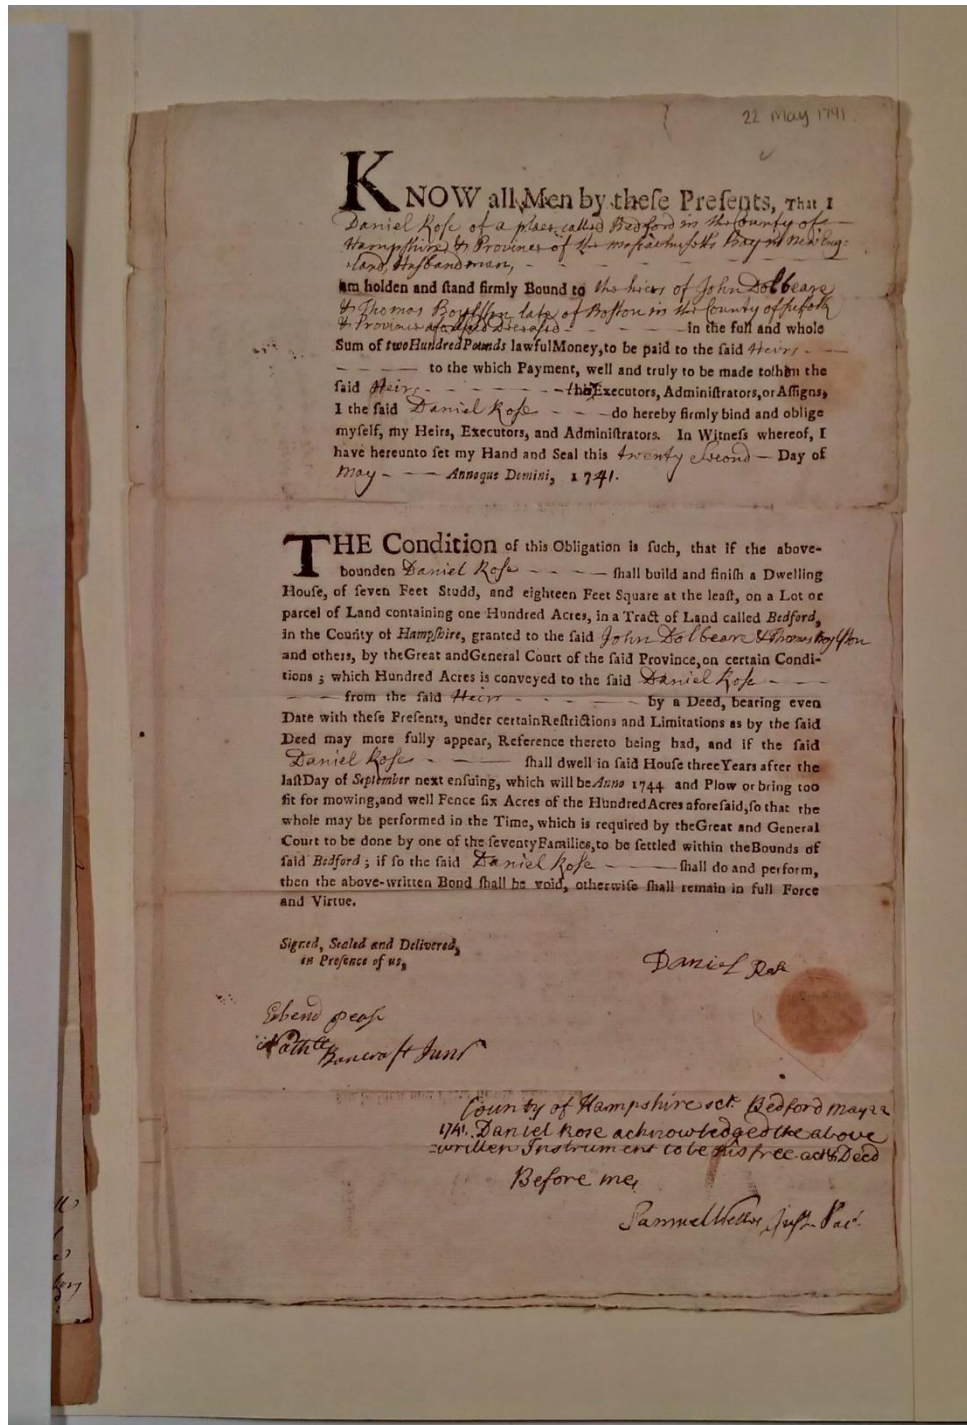 22 May 1741
KNOW all Men by theſe Preſents, That I
Daniel Roſe of a place called Bedford in the County of
Hampſhire & Province of the Maſſachuſetts Bay in New Eng-
land, Huſbandman, - - - - - -
am holden and ſtand firmly Bound to the heirs of John Dolbeare
& Thomas Boylſton late of Boſton in the County of Suffolk
& Province aforeſaid Deceaſed - - - - in the full and whole
Sum of two Hundred Pounds lawful Money, to be paid to the ſaid Heirs - —
— - - - - to the which Payment, well and truly to be made to them the
ſaid Heirs - - - - - - - Executors, Adminiſtrators, or Aſſigns,
I the ſaid Daniel Roſe - - - do hereby firmly bind and oblige
myſelf, my Heirs, Executors, and Adminiſtrators. In Witneſs whereof, I
have hereunto ſet my Hand and Seal this twenty Second — Day of
May - - — Annoque Domini, 1741.
THE Condition of this Obligation is ſuch, that if the above-
bounden Daniel Roſe - - - - ſhall build and finiſh a Dwelling
Houſe, of ſeven Feet Studd, and eighteen Feet Square at the leaſt, on a Lot or
parcel of Land containing one Hundred Acres, in a Tract of Land called Bedford,
in the County of Hampſhire, granted to the ſaid John Dolbeare & Thomas Boylſton
and others, by the Great and General Court of the ſaid Province, on certain Condi-
tions ; which Hundred Acres is conveyed to the ſaid Daniel Roſe - - -
- - — from the ſaid Heirs - - - - - by a Deed, bearing even
Date with theſe Preſents, under certain Reſtrictions and Limitations as by the ſaid
Deed may more fully appear, Reference thereto being had, and if the ſaid
Daniel Roſe - - — ſhall dwell in ſaid Houſe three Years after the
laſt Day of September next enſuing, which will be Anno 1744 and Plow or bring too
fit for mowing, and well Fence ſix Acres of the Hundred Acres aforeſaid, ſo that the
whole may be performed in the Time, which is required by the Great and General
Court to be done by one of the ſeventy Families, to be ſettled within the Bounds of
ſaid Bedford ; if ſo the ſaid Daniel Roſe - - — ſhall do and perform,
then the above-written Bond ſhall be void, otherwiſe ſhall remain in full Force
and Virtue.
Signed, Sealed and Delivered,
in Preſence of us,
Daniel Roſe
Ebenr peaſe
Nathll Bancroft Junr
County of Hampshire sct. Bedford may 22
1741. Daniel Rose acknowledged the above
written Instrument to be his free act & Deed
Before me,
Samuel Just Pac.